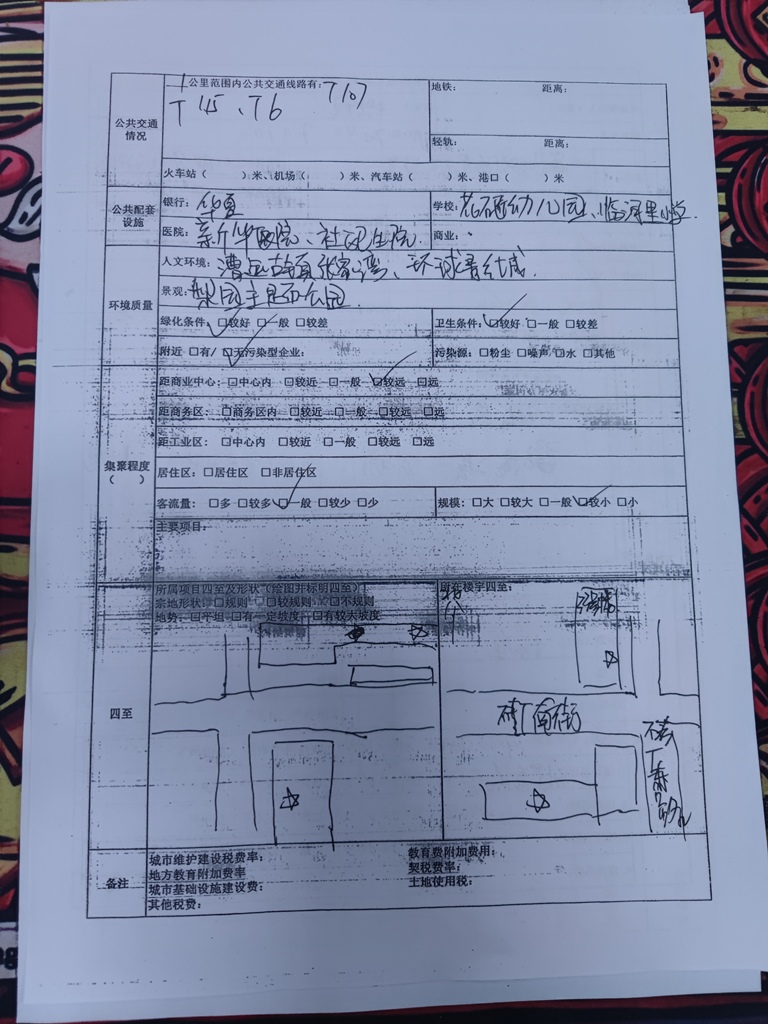 公共交通情况
1公里范围内公共交通线路有：T107
T45、T6
地铁： 距离：
轻轨： 距离：
火车站（ ）米、机场（ ）米、汽车站（ ）米、港口（ ）米
公共配套设施
银行：华夏
学校：花石匠幼儿园、临河里小学.
医院：新华医院、社卫生院.
商业：
环境质量
人文环境：漕运古镇张家湾、环球影城.
景观：梨园主题公园.
绿化条件：☑较好 □一般 □较差
卫生条件：☑较好 □一般 □较差
附近 □有/ ☑无污染型企业：
污染源：□粉尘 □噪声 □水 □其他
集聚程度
（ ）
距商业中心：□中心内 □较近 □一般 ☑较远 □远
距商务区：□商务区内 □较近 □一般 □较远 □远
距工业区：□中心内 □较近 □一般 □较远 □远
居住区：□居住区 □非居住区
客流量：□多 □较多 ☑一般 □较少 □少
规模：□大 □较大 □一般 ☑较小 □小
主要项目：
四至
所属项目四至及形状（绘图并标明四至）
宗地形状：□规则 □较规则 □不规则
地势：□平坦 □有一定坡度 □有较大坡度
所在楼宇四至：
南街
备注
城市维护建设税费率：
教育费附加费用：
地方教育附加费率
契税费率：
城市基础设施建设费：
土地使用税：
其他税费：